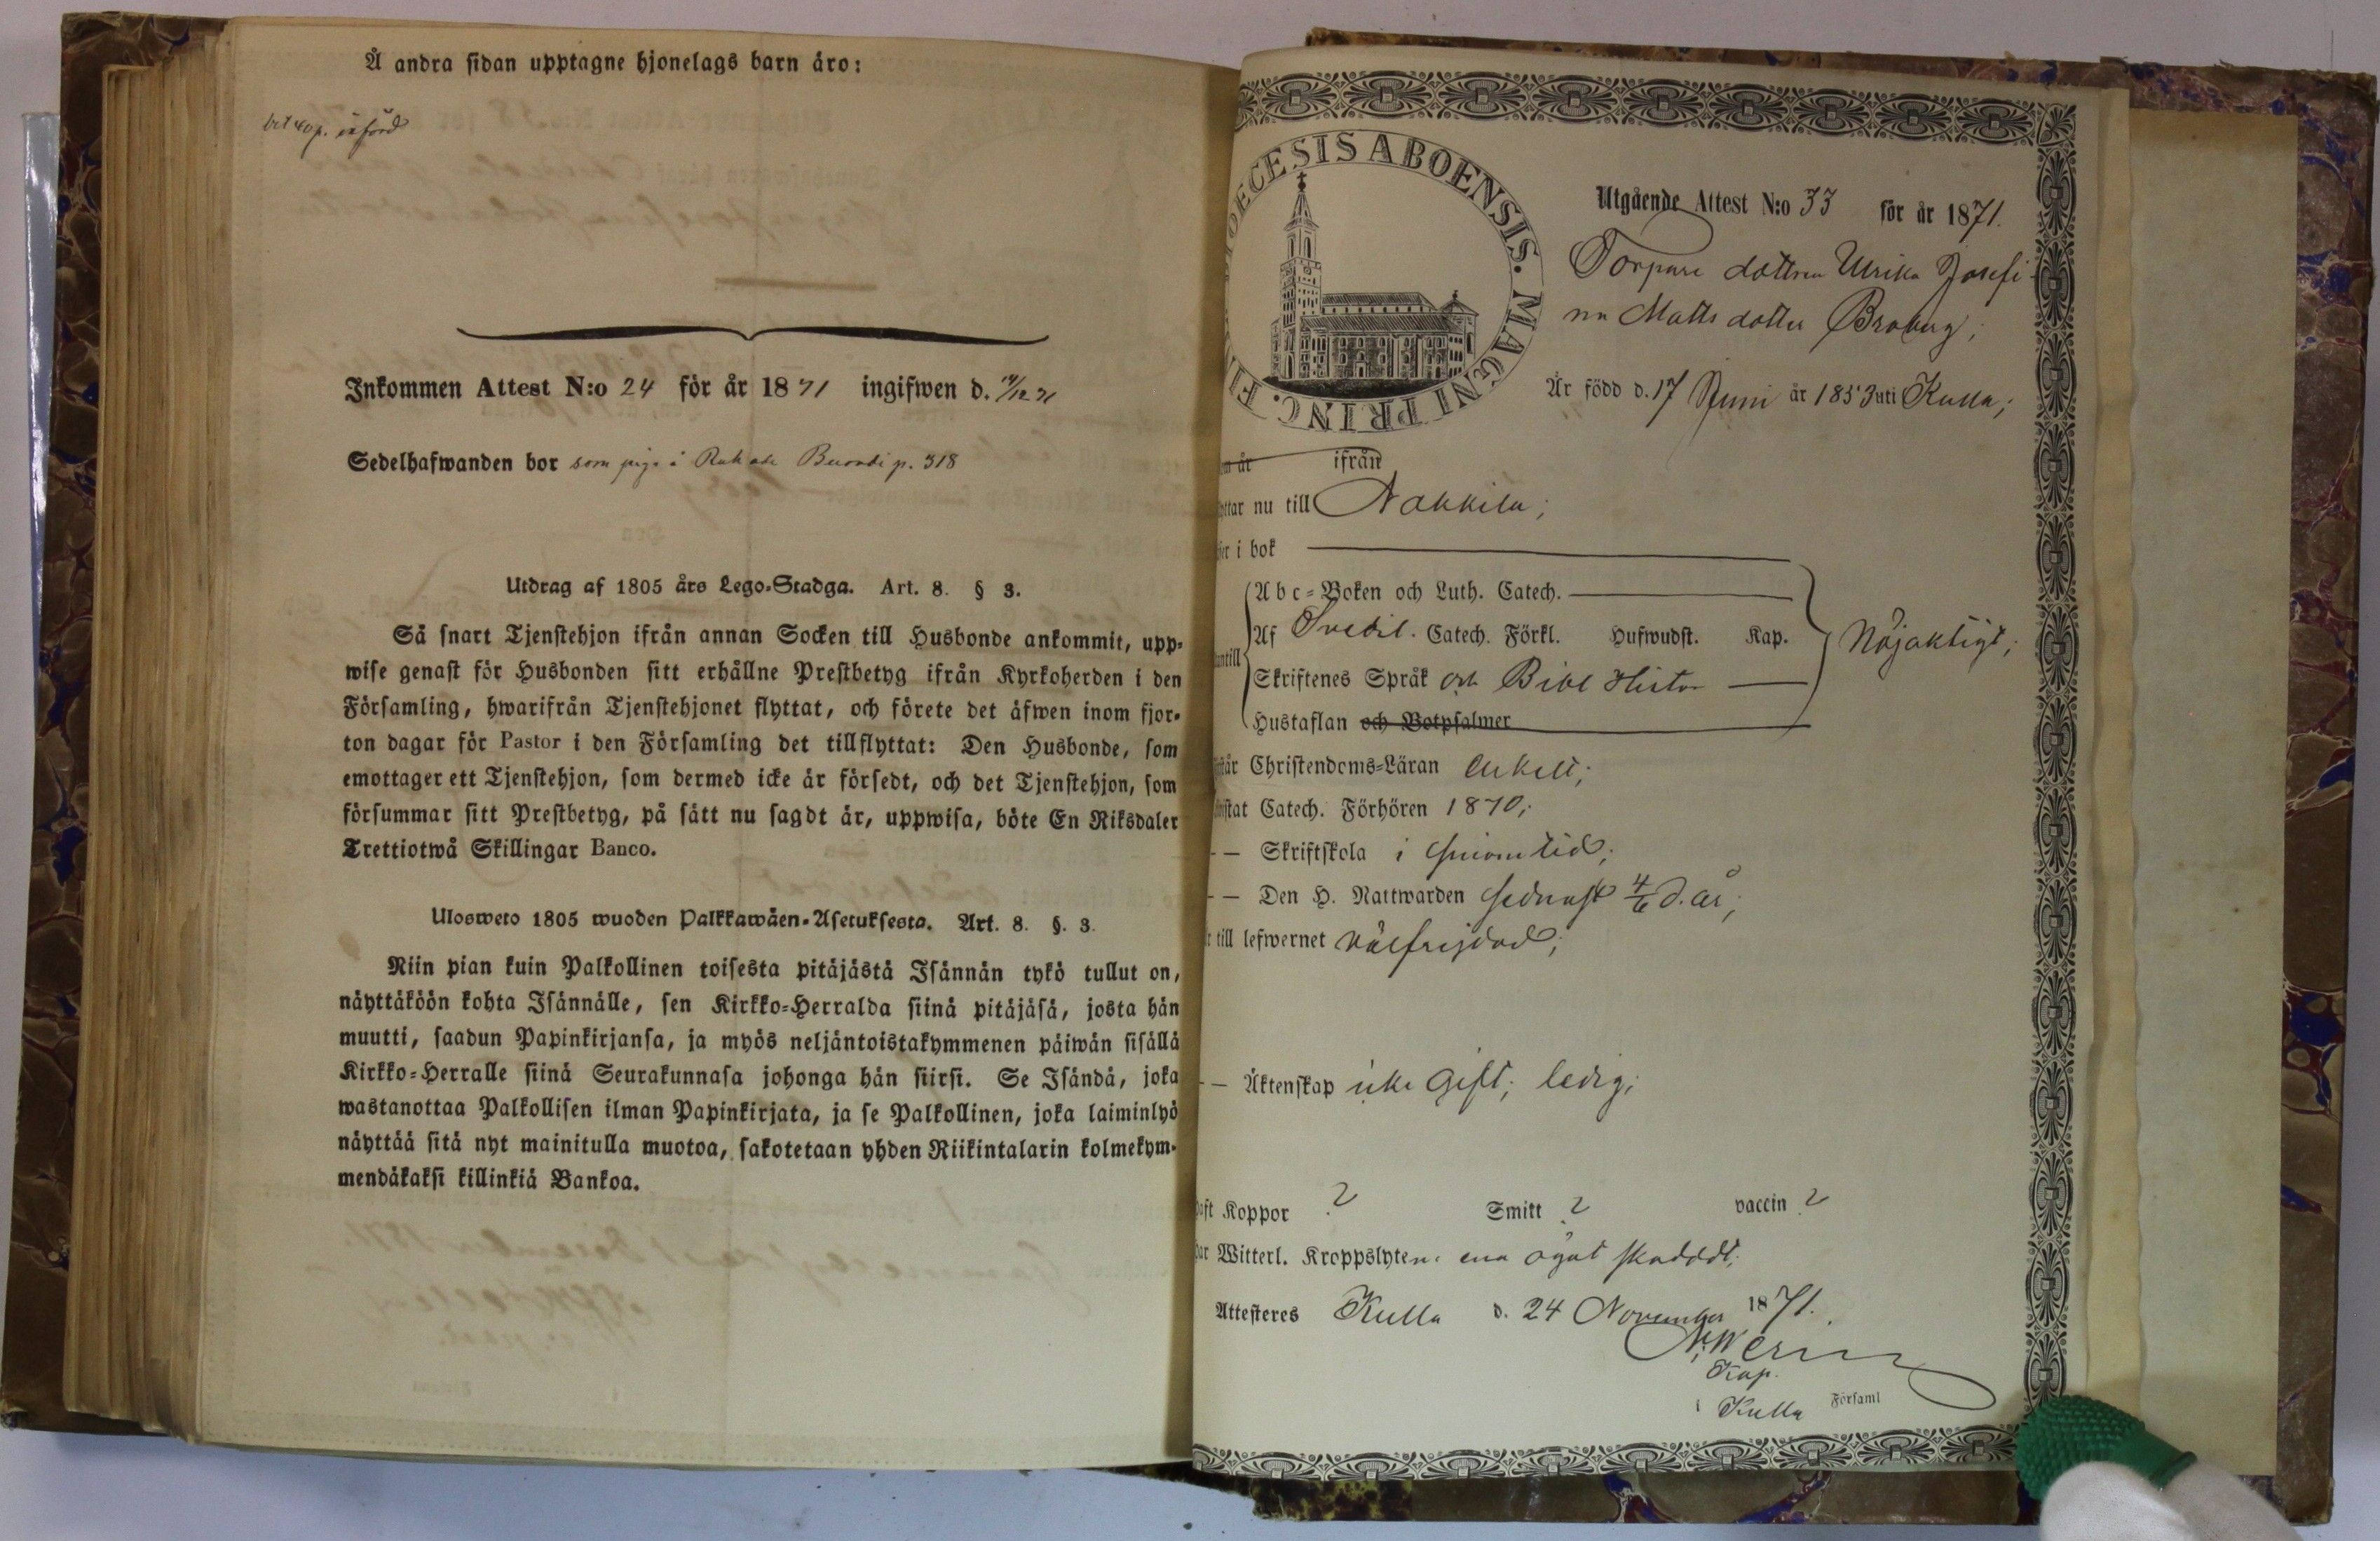 Å andra sidan upptagne hjonelags barn äro:
bet 40 p. införd
Inkommen Attest N:o 24 för år 1871 ingifwen d. 14/12 71
Sedelhafwanden bor som piga å p. 318
Utdrag af 1805 års Lego-Stadga. Art. 8. § 3.
Så snart Tjenstehjon ifrån annan Socken till Husbonde ankommit, upp-
wise genast för Husbonden sitt erhållne Prestbetyg ifrån Kyrkoherden i den
Församling, hwarifrån Tjenstehjonet flyttat, och förete det äfwen inom fjor-
ton dagar för Pastor i den Församling det tillflyttat: Den Husbonde, som
emottager ett Tjenstehjon, som dermed icke är försedt, och det Tjenstehjon, som
försummar sitt Prestbetyg, på sätt nu sagdt är, uppwisa, böte En Riksdaler
Trettiotwå Skillingar Banco.
Ulosweto 1805 wuoden Palkkawäen-Asetuksesta. Art. 8. §. 3.
Niin pian kuin Palkollinen toisesta pitäjästä Isännän tykö tullut on,
näyttäköön kohta Isännälle, sen Kirkko-Herralda siinä pitäjäsä, josta hän
muutti, saadun Papinkirjansa, ja myös neljäntoistakymmenen päiwän sisällä
Kirkko-Herralle siinä Seurakunnasa johonga hän siirsi. Se Isändä, joka
wastanottaa Palkollisen ilman Papinkirjata, ja se Palkollinen, joka laiminlyö
näyttää sitä nyt mainitulla muotoa, sakotetaan yhden Riikintalarin kolmekym-
mendäkaksi killinkiä Bankoa.
DIOECESIS ABOENSIS. MAGNI PRINC. FI
Utgående Attest N:o 33 för år 1871.
Torpare dottren Ulrika Josefi-
na Matts dotter Broberg;
Är född d. 17 Juni år 1853 uti Kulla;
om år ifrån
yttar nu till Nakkila;
ser i bok
Abc-Boken och Luth. Catech.
Af Svebil. Catech. Förkl. Hufwudst. Kap.
Nöjaktigt;
antill
Skriftenes Språk och Bibl Histor
Hustaflan och Botpsalmer
står Christendoms-Läran enkelt;
wistat Catech. Förhören 1870;
— Skriftskola i sinom tid;
— Den H. Nattwarden sednast 4/6 d. år;
r till lefwernet välfrejdad;
— Äktenskap icke gift; ledig;
aft Koppor ? Smitt ? vaccin ?
ar Witterl. Kroppslyten: ena ögat skadadt;
Attesteres Kulla d. 24 November 1871.
Kap.
i Kulla Församl